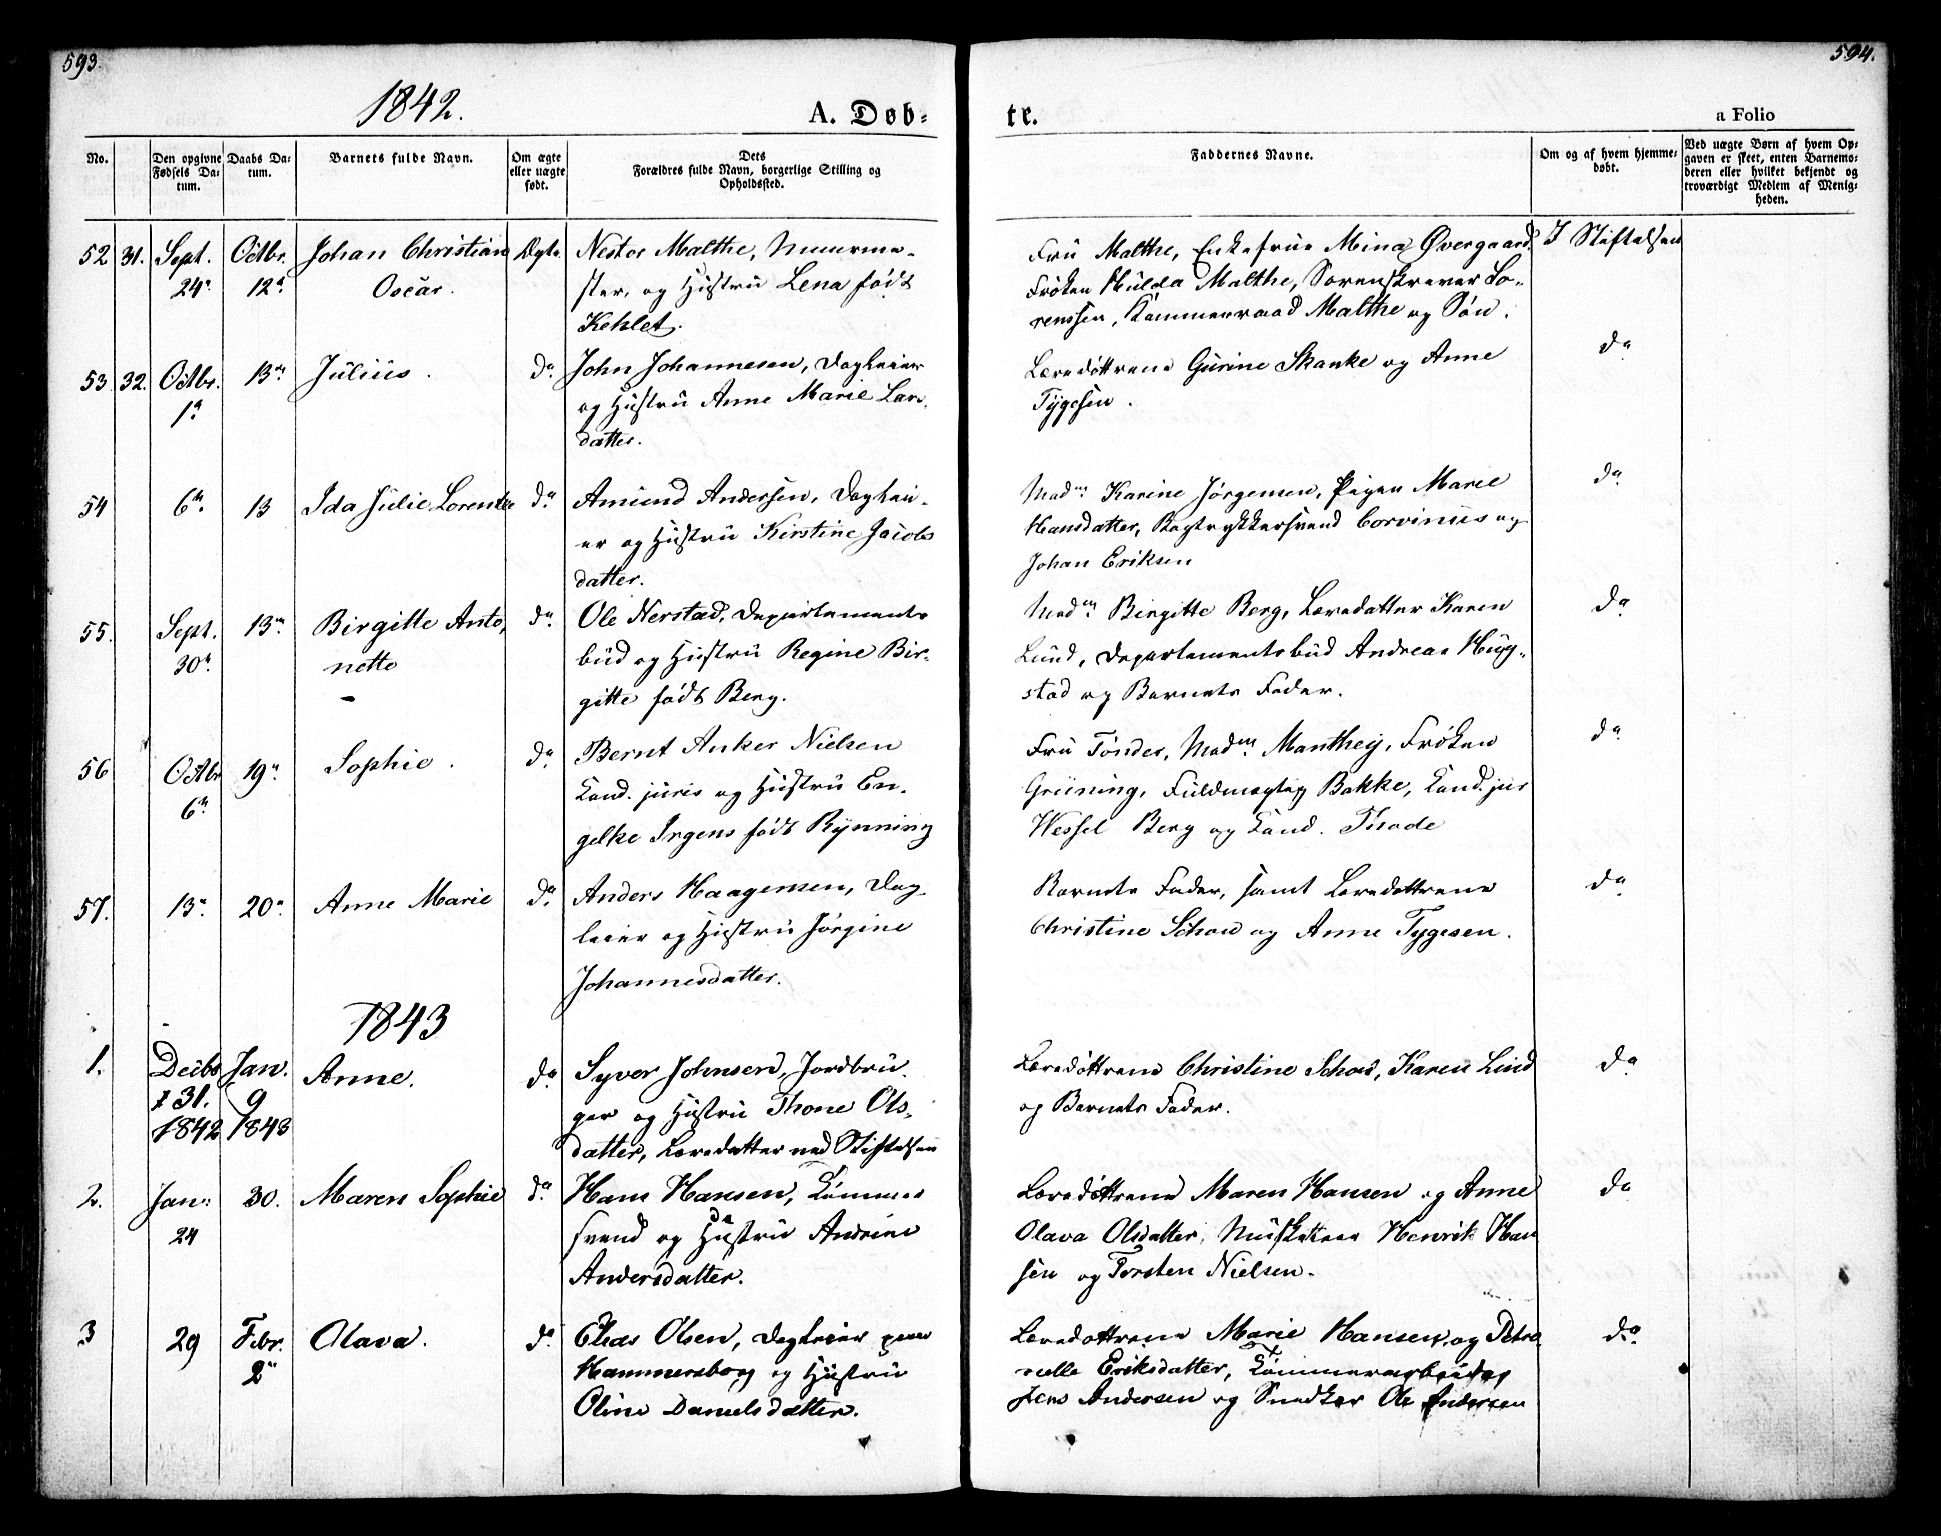 593.
594.
1842.
A. Døb=
te.
a Folio
No.
Den opgivne Fødsels Da=tum.
Daabs Da=tum.
Barnets fulde Navn.
Om ægte eller uægte født.
Dets Forældres fulde Navn, borgerlige Stilling og Opholdssted.
Faddernes Navne.
Om og af hvem hjemme=døbt.
Ved uægte Børn af hvem Op=gaven er skeet, enten Barnemo=deren eller hvilket bekjendt og troværdigt Medlem af Menig=heden.
52 31. Sept. Octbr. Johan Christian Ægte Nestor Malthe, Muurme-
24. 12. Oscar. ster, og Hustru Lena født
Kehlet.
Fru Malthe, Enkefrue Mina Øvergaard, I Stiftelsen
Frøken Hulda Malthe, Sorenskriver Lo-
renssen, Kammerraad Malthe og Søn.
53 32. Octbr. 13de Julius. do. John Johannesen, Dagleier
1. og Hustru Anne Marie Lars
datter.
Læredøttrene Gurine Skanke og Anne do
Tygesen.
54 6te 13 Ida Julie Lorentze do. Amund Andersen, Daglei-
er og Hustru Kirstine Jacobs
datter.
Madm Karine Jørgensen, Pigen Marie do
Hansdatter, Bogtrykkersvend Corvinus og
Johan Eriksen
55. Sept. 13de Birgitte Anto, do. Ole Nerstad, Departements
30. nette bud og Hustru Regine Bir-
gitte født Berg.
Madm Birgitte Berg, Læredatter Karen do
Lund, Departementsbud Andreas Hug-
stad og Barnets Fader.
56 Octbr 19. Sophie. do. Bernt Anker Nielsen
6te Cand. juris og Hustru En-
gelke Irgens født Rynning
Fru Tønder, Madm Manthey, Frøken do
Grüning, Fuldmægtig Bakke, Cand. jur
Wessel Berg og Cand. Thode
57. 13. 20. Anne Marie do. Anders Haagensen, Dag-
leier og Hustru Jørgine
Johannesdatter.
Barnets Fader, samt Læredøttrene do
Christine Schou og Anne Tygesen.
1843
1. Decbr Jan. Anne. do. Syver Johnsen, Jordbru-
31. 9 ger og Hustru Thone Ols-
1842 1843 datter, Læredatter ved Stiftelsen
Læredøttrene Christine Schou, Karen Lund do
og Barnets Fader.
2. Jan: 30. Maren Sophie do. Hans Hansen, Tømmer
24 svend og Hustru Andrine
Andersdatter.
Læredøttrene Maren Hansen og Anne do
Olava Olsdatter, Musketeer Henrik Han
sen og Torsten Nielsen.
3 29 Febr. Olava. do. Elias Olsen, Dagleier paa
2 Hammersborg og Hustru
Oline Danielsdatter.
Læredøttrene Marie Hansen, og Petro do.
nelle Eriksdatter, Tømmerarbeider
Jens Andersen og Snedker Ole Andersen